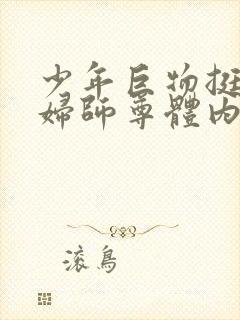 少年巨物挺
婦師尊體内
滚鳥